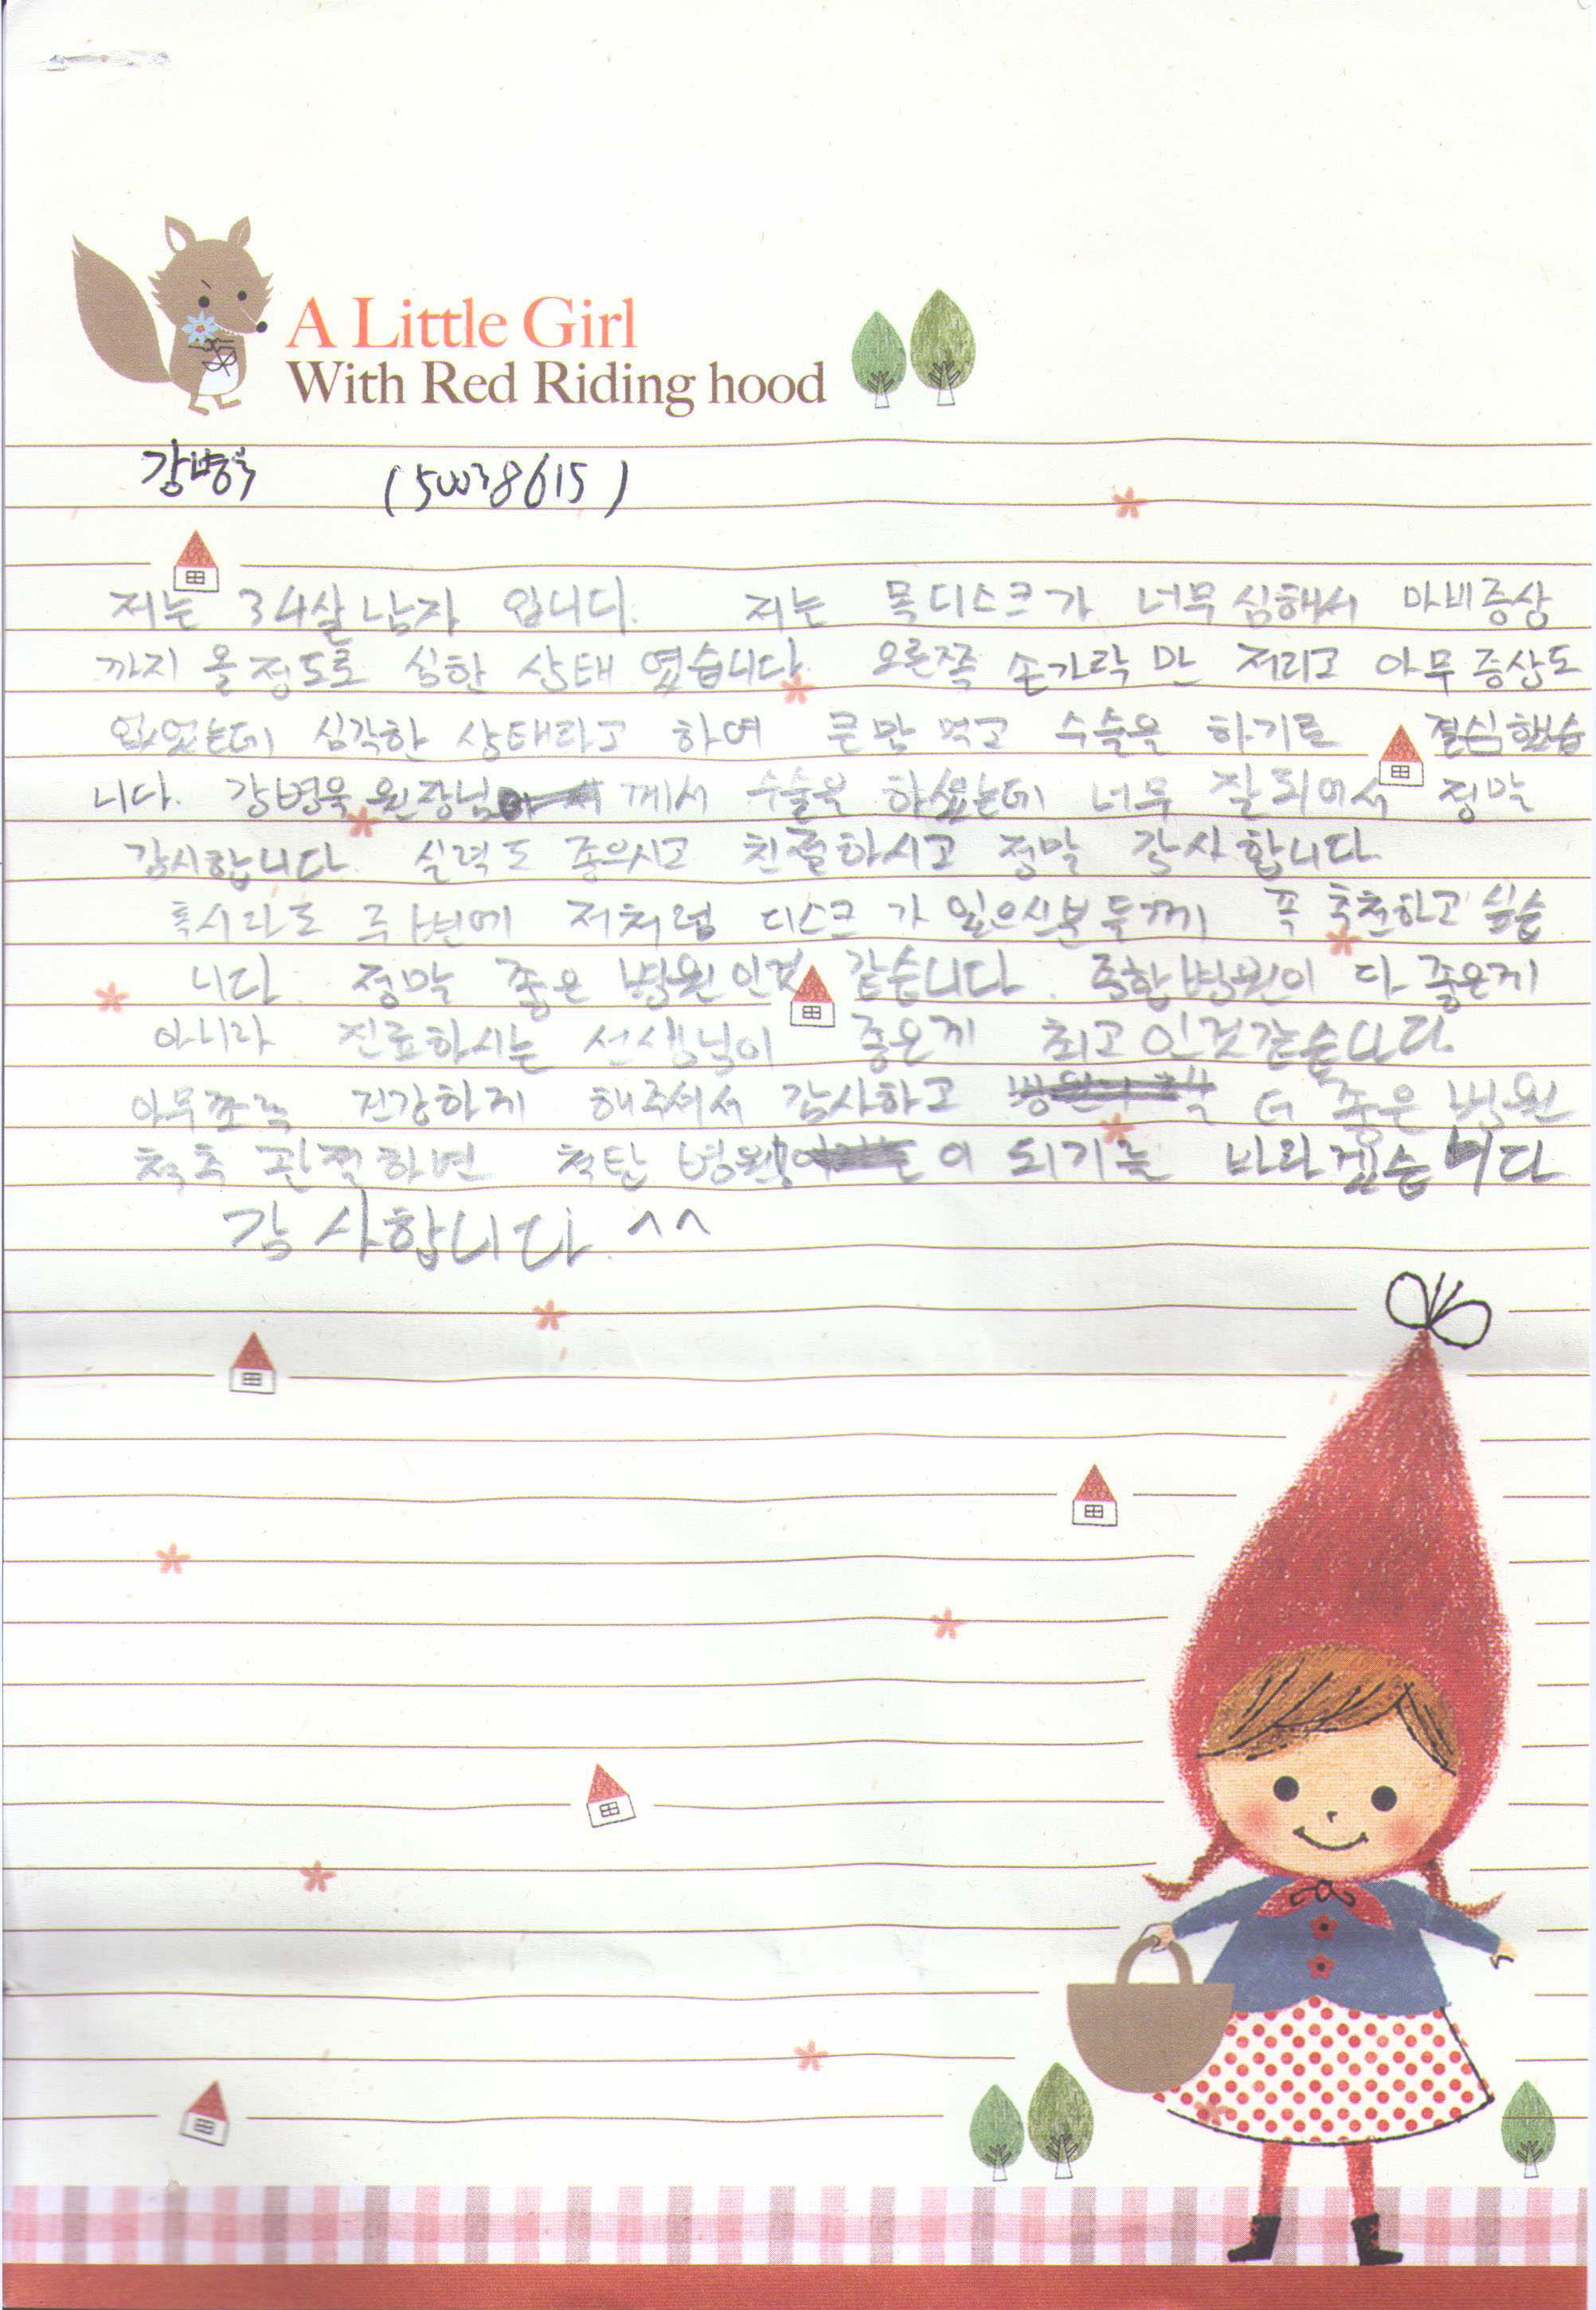 A Little Girl
With Red Riding hood
강병욱 (50038615)
저는 34살 남자 입니다. 저는 목디스크가 너무 심해서 마비증상
까지 올정도로 심한 상태 였습니다. 오른쪽 손가락 만 저리고 아무 증상도
없었는데 심각한 상태라고 하여 큰맘 먹고 수술을 하기로 결심했습
니다. 강병욱 원장님 께서 수술을 하셨는데 너무 잘되어서 정말
감사합니다. 실력도 좋으시고 친절하시고 정말 감사합니다.
혹시라도 주변에 저처럼 디스크 가 있으신분들께 꼭 추천하고 싶습
니다. 정말 좋은 병원인것 같습니다. 종합병원이 다 좋은게
아니라 진료하시는 선생님이 좋은게 최고인것같습니다.
아무쪼록 건강하게 해주셔서 감사하고 더 좋은 병원
척추 관절하면 척탄 병원 이 되기를 바라겠습니다
감사합니다. ^^